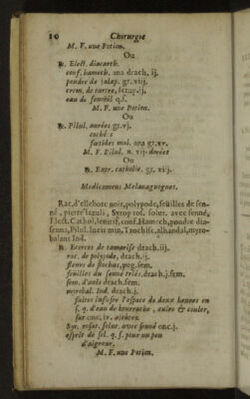 10 Chirurgie
M. F. une Potion.
Ou
℞. Elect. diacarth.
conf. hamech. ana drach. ij.
poudre de jalap. gr. viij.
crem. de tartre,
eau de q.s.
M. F. une Potion.
Ou
℞. Pilul. aurées gr.
cochées
fœtides mol. ana gr. xv.
M. F. Pilul. n. vij. dorées
Ou
℞. Extr. catholic. gr.
Medicamens Melanagogues.
Rac. d'ellebore noir, polypode, feüilles de sen-
né, pierre lazuli, Syrop ros. solut. avec senné,
Elect. Cathol, lenitif, conf. Hamech, poudre dia-
senna, Pilul. lucis mai, Tinochise, alhandal, myro-
balans Ind.
℞. Ecorces de tamarisc drach. iij.
rac. de polypode, drach. ij.
fleurs de stechas, pug. sem.
feuilles du senné triés, drach. j. sem.
sem. d'anis drach. sem.
myrobal. Ind. drach. j.
faites infuser l'espace de deux heures en
s. q. d'eau de bourrache, cuire & couler,
sur onc. iv.
Syr. rosat. solut. avec senné onc. j.
esprit de sel. q. s. pour un peu
d'aigreur,
M. F. une Potion.